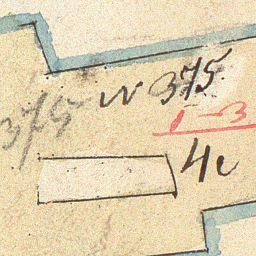 N 375.
375
1-3
4c